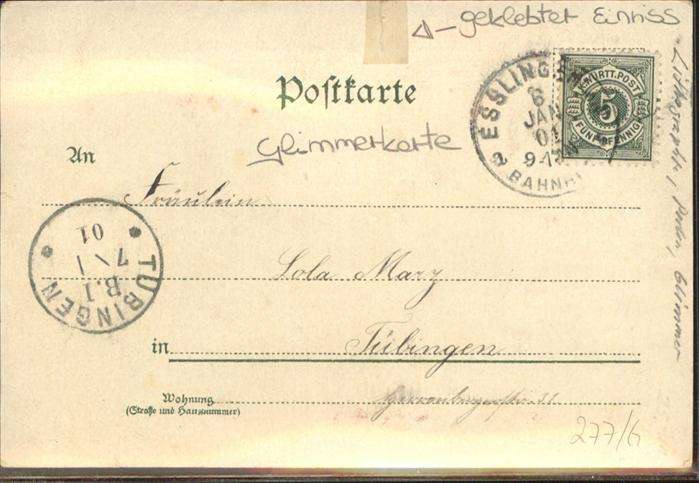 geklebter Einriss
Postkarte
ESSLINGEN
6
JAN
01
BAHNHF
K. WÜRTT. POST
5
FÜNF PFENNIG
Glimmerkarte
Lithographie, Perlen, Glimmer
An
Fräulein
Lola Marz
in Tübingen
TÜBINGEN
B.I
7 \ 1
01
Wohnung
(Straße und Hausnummer)
277/6